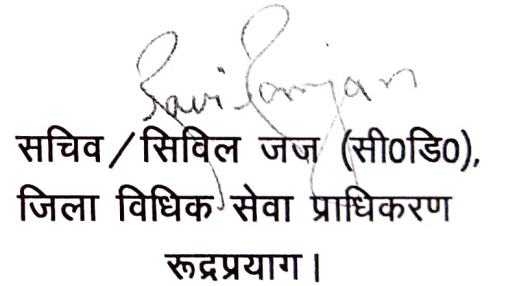 Ravi Ranjan
सचिव/सिविल जज (सी0डि0),
जिला विधिक सेवा प्राधिकरण
रूद्रप्रयाग।